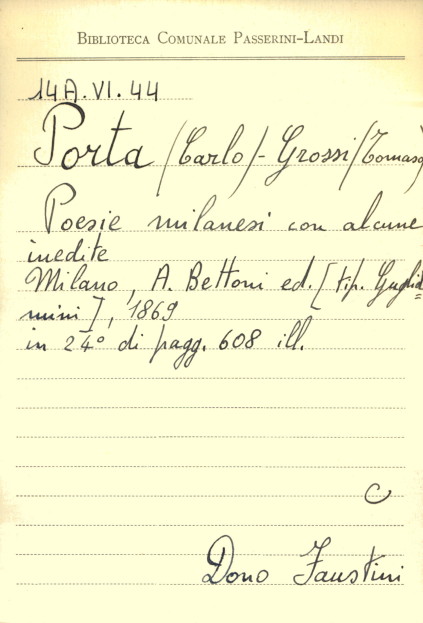 BIBLIOTECA COMUNALE PASSERINI-LANDI
14A.VI.44
Porta (Carlo) - Grossi (Tomaso
Poesie milanesi con alcune
inedite
Milano, A. Bettoni ed. [tip. Guglid=
mini], 1869
in 24° di pagg. 608 ill.
C
Dono Faustini